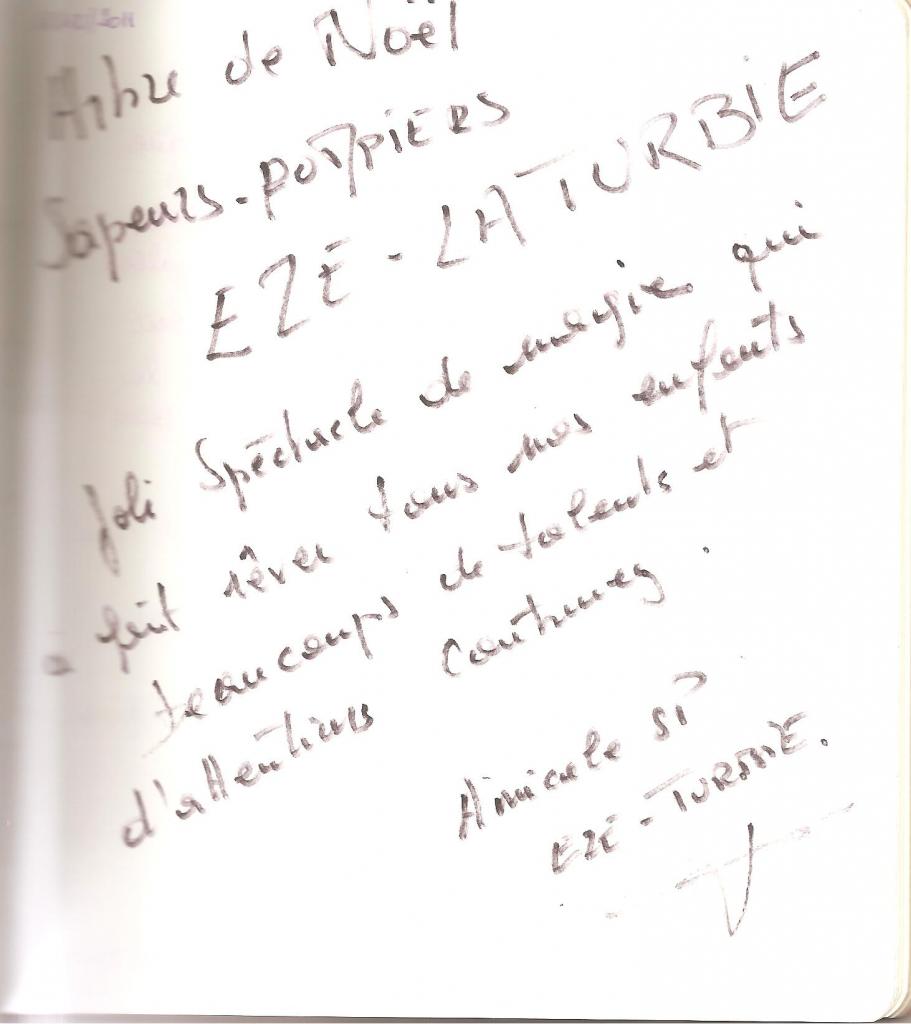 Arbre de Noël
Sapeurs-pompiers
EZE - LA TURBIE
Joli Spéctacle de magie qui
a fait rêver tous nos enfants
beaucoups de talents et
d'attentions continuez.
Amicale SP
EZE - TURBIE.